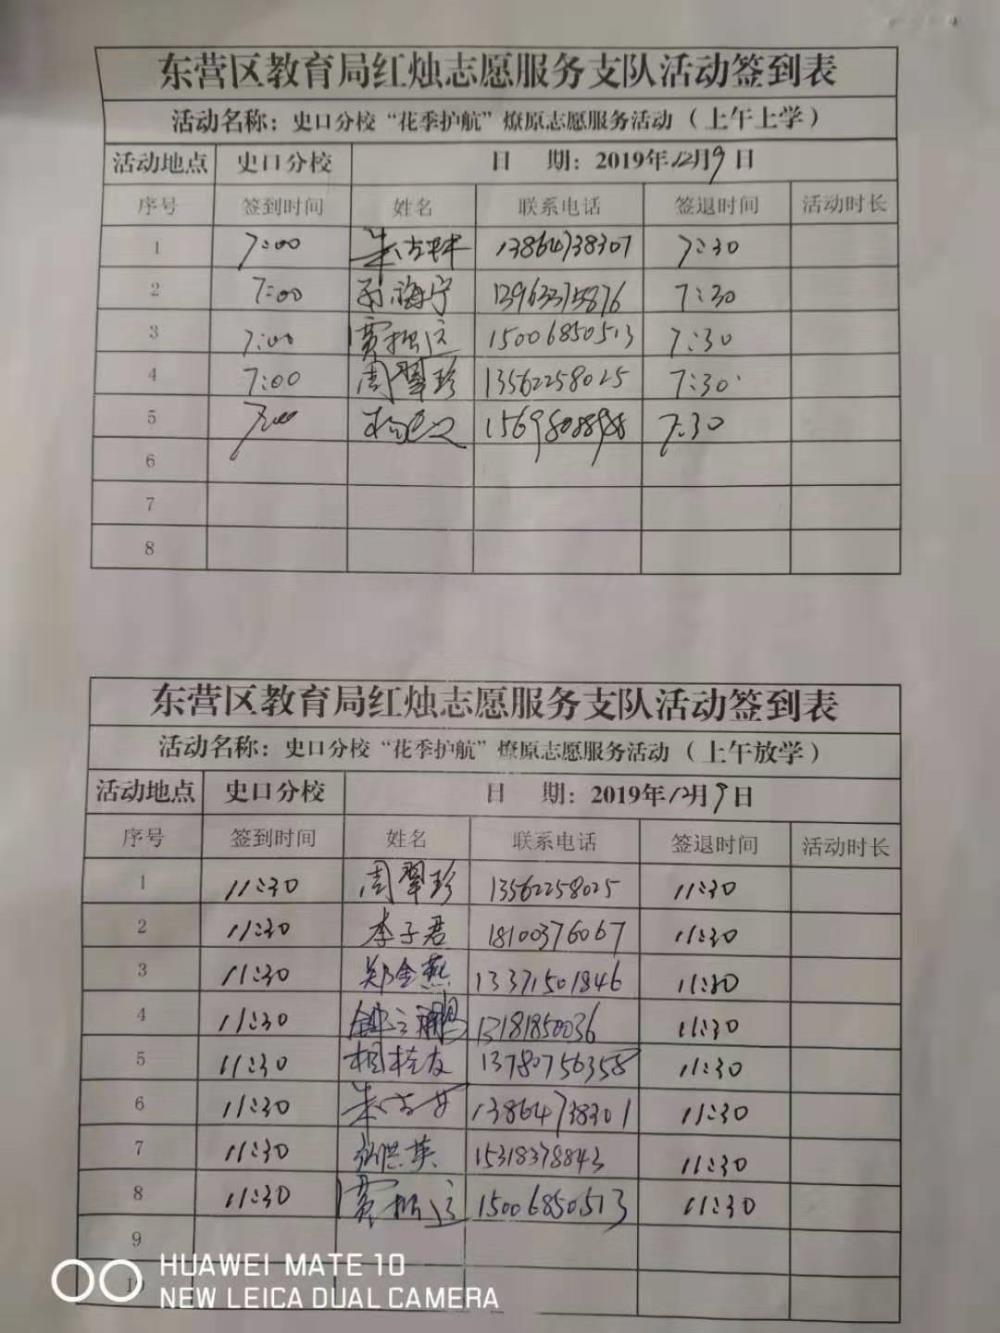 东营区教育局红烛志愿服务支队活动签到表
活动名称：史口分校“花季护航”燎原志愿服务活动（上午上学）
活动地点 史口分校 日 期：2019年12月9日
序号 签到时间 姓名 联系电话 签退时间 活动时长
1 7:00 13864738301 7:30
2 7:00 孙海宁 13963375876 7:30
3 7:00 贾振 15006850513 7:30
4 7:00 周翠珍 13562258025 7:30
5 7:00 7:30
6
7
8
东营区教育局红烛志愿服务支队活动签到表
活动名称：史口分校“花季护航”燎原志愿服务活动（上午放学）
活动地点 史口分校 日 期：2019年12月9日
序号 签到时间 姓名 联系电话 签退时间 活动时长
1 11:30 周翠珍 13562258025 11:30
2 11:30 李子君 18100376067 11:30
3 11:30 郑金燕 13371501846 11:30
4 11:30 13181850036 11:30
5 11:30 相桂友 13780756358 11:30
6 11:30 13864738301 11:30
7 11:30 张洪英 15318378843 11:30
8 11:30 贾振 15006850513 11:30
9
10
HUAWEI MATE 10
NEW LEICA DUAL CAMERA